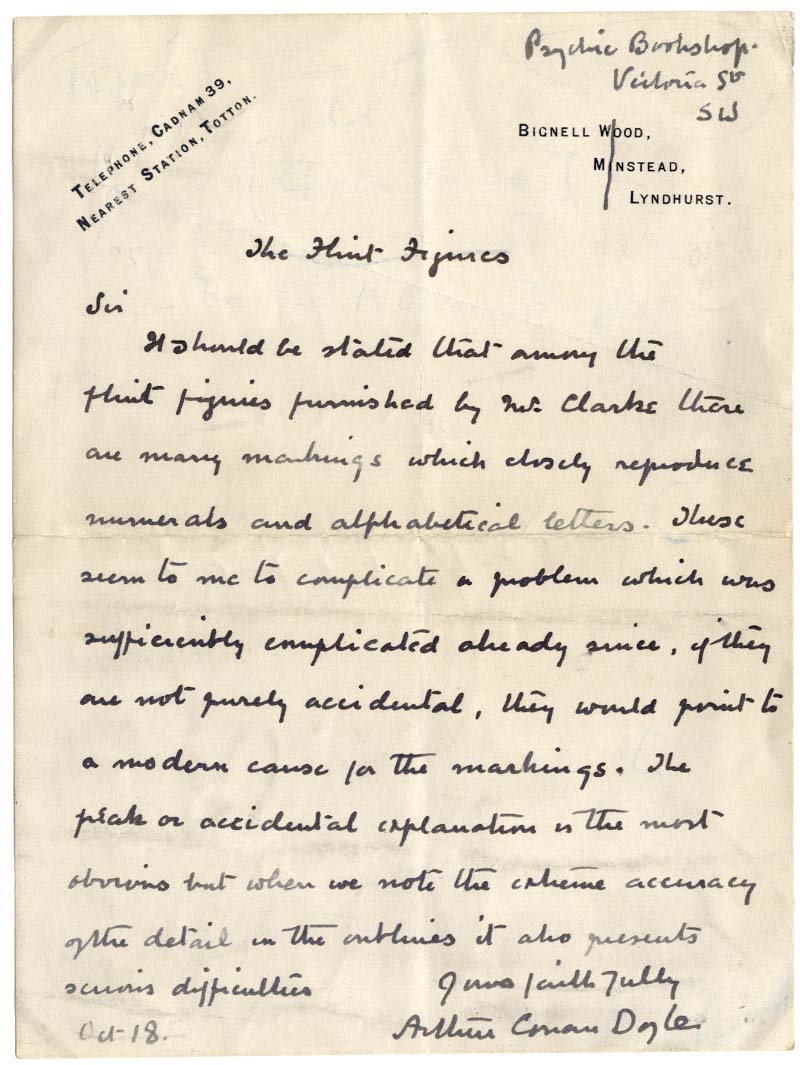 Psychic Bookshop.
Victoria St
SW
TELEPHONE, CADNAM 39,
NEAREST STATION, TOTTON.
BIGNELL WOOD,
MINSTEAD,
LYNDHURST.
The Flint Figures
Sir
It should be stated that among the
flint figures furnished by Mr. Clarke there
are many markings which closely reproduce
numerals and alphabetical letters. These
seem to me to complicate a problem which was
sufficiently complicated already since, if they
are not purely accidental, they would point to
a modern cause for the markings. The
freak or accidental explanation is the most
obvious but when we note the extreme accuracy
of the detail in the outlines it also presents
serious difficulties
Yours faithfully
Arthur Conan Doyle
Oct 18.